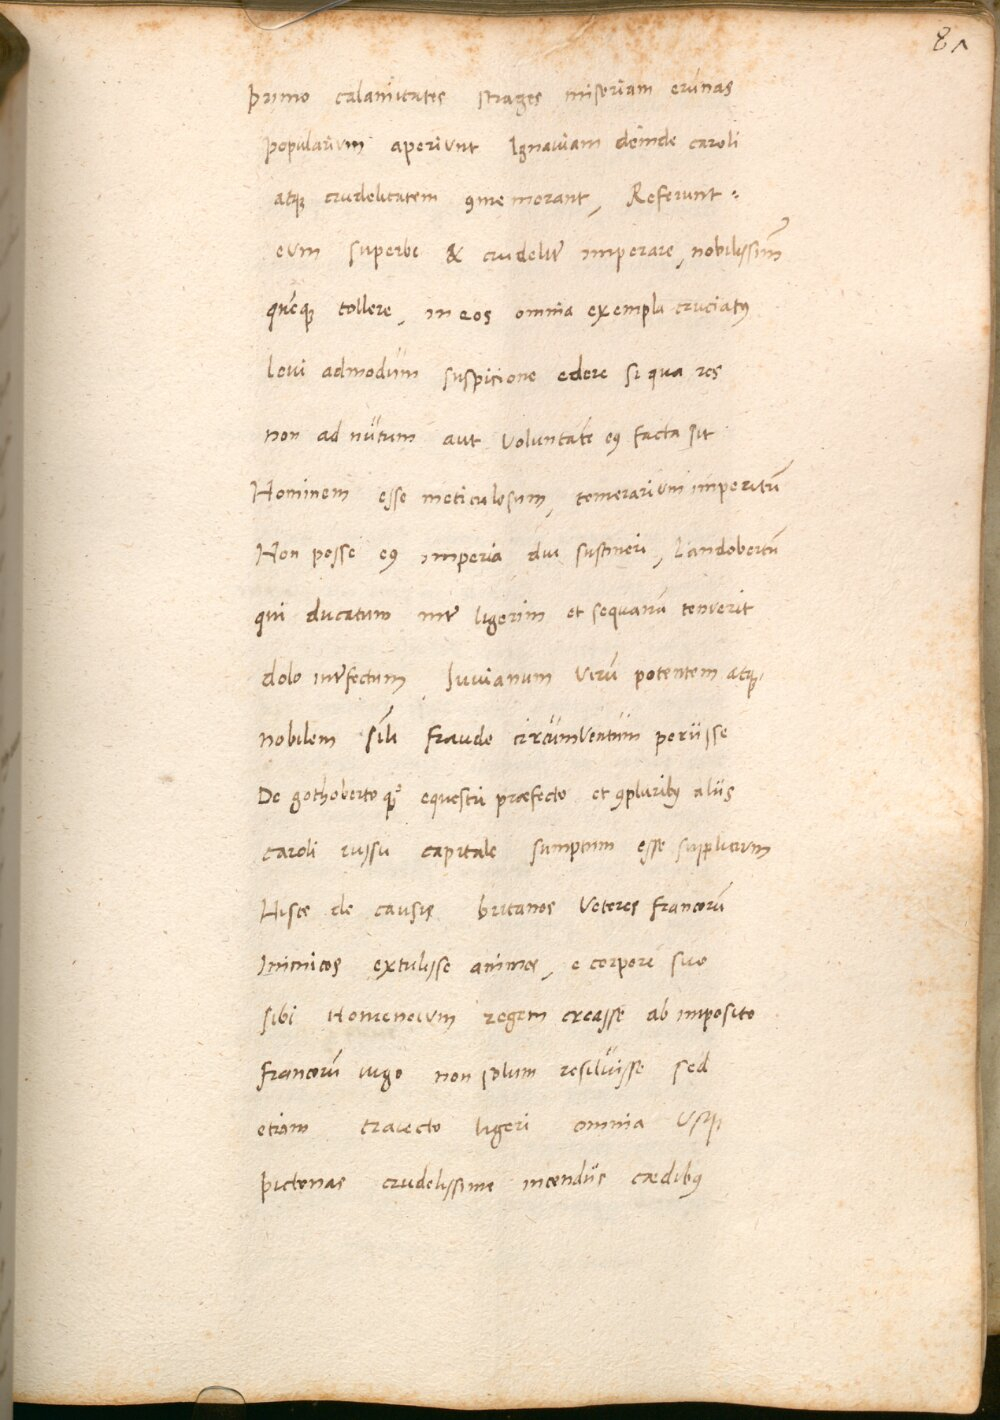 81
primo calamitates strages miseriam erũnas
popularium aperiunt Ignauiam deinde caroli
atqꝫ crudelitatem ꝯmemorant, Referunt :
eum superbe & crudelit̃ imperare, nobilissim̃
quẽqꝫ tollere, in eos omnia exempla cruciatꝰ
leui admodum suspicione edere si qua res
non ad nŭtum aut voluntatẽ eiꝰ facta sit
Hominem esse meticulosum, temerarium imperitũ
Non posse eiꝰ imperia diu sustineri, Landobertũ
qui ducatum int̃ ligerim et sequanã tenuerit
dolo int̃fectum Iuuianum virũ potentem atqꝫ
nobilem sĩli fraude circŭmuentŭm periisse
De gothoberto qꝫ equestri præfecto et ꝯpluribꝰ aliis
caroli iussu capitale sumptum esse supplicium
Hisce de causis britanos veteres francorũ
Inimicos extulisse animos, e corpore suo
sibi Nomenoium regem creasse ab imposito
francorũ iugo non solum resilŭisse sed
etiam traiecto ligeri omnia usqꝫ
pictonas crudelissime incendiis cædibꝰ